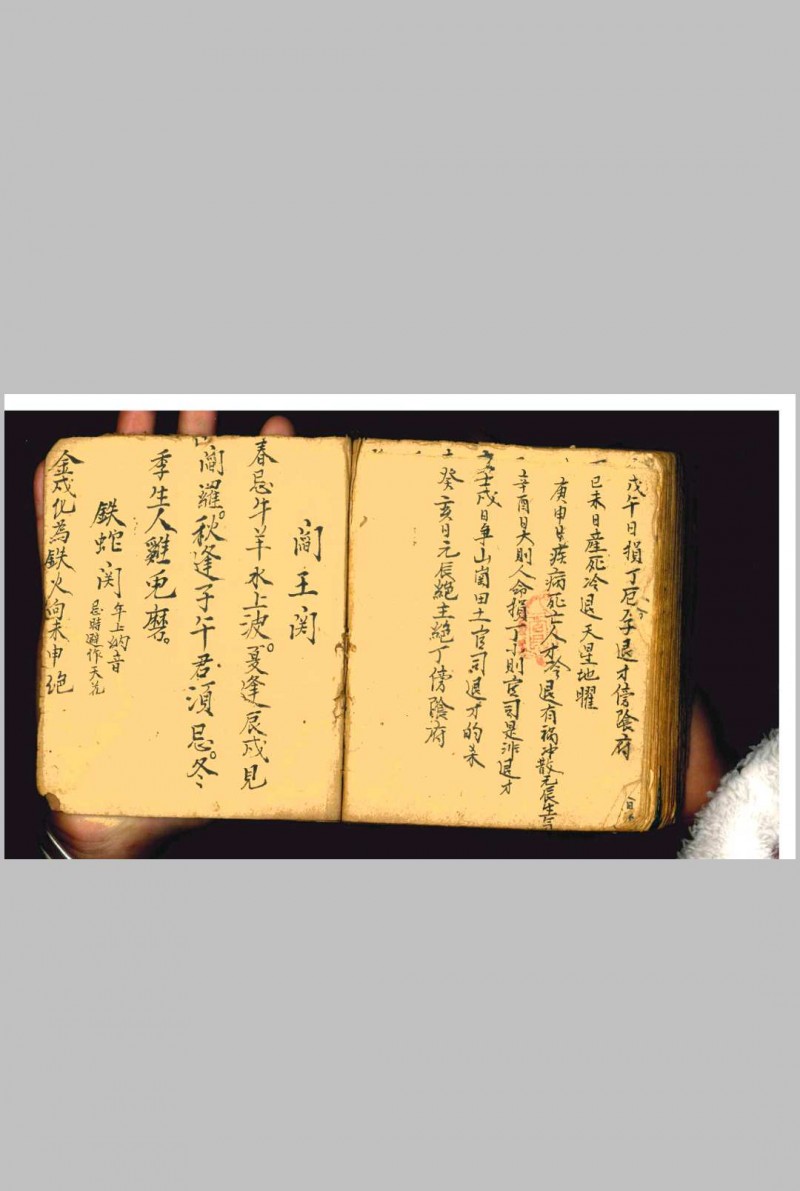 戊午日損丁厄孕退才傍陰府
己未日産死冷退天星地曜
庚申日疾病死亡人才冷退有禍冲散元辰生
辛酉日大則人命損丁小則官司是非退才
壬戌日爭山崗田土官司退才的杀
癸亥日元辰絕主絕丁傍陰府
閻王関
春忌牛羊水上波。夏逢辰戌見
閻羅。秋逢子午君須忌。冬
季生人雞兎磨。
鉄蛇関
年上納音
忌時遁作天
金戌化為鉄火向未申